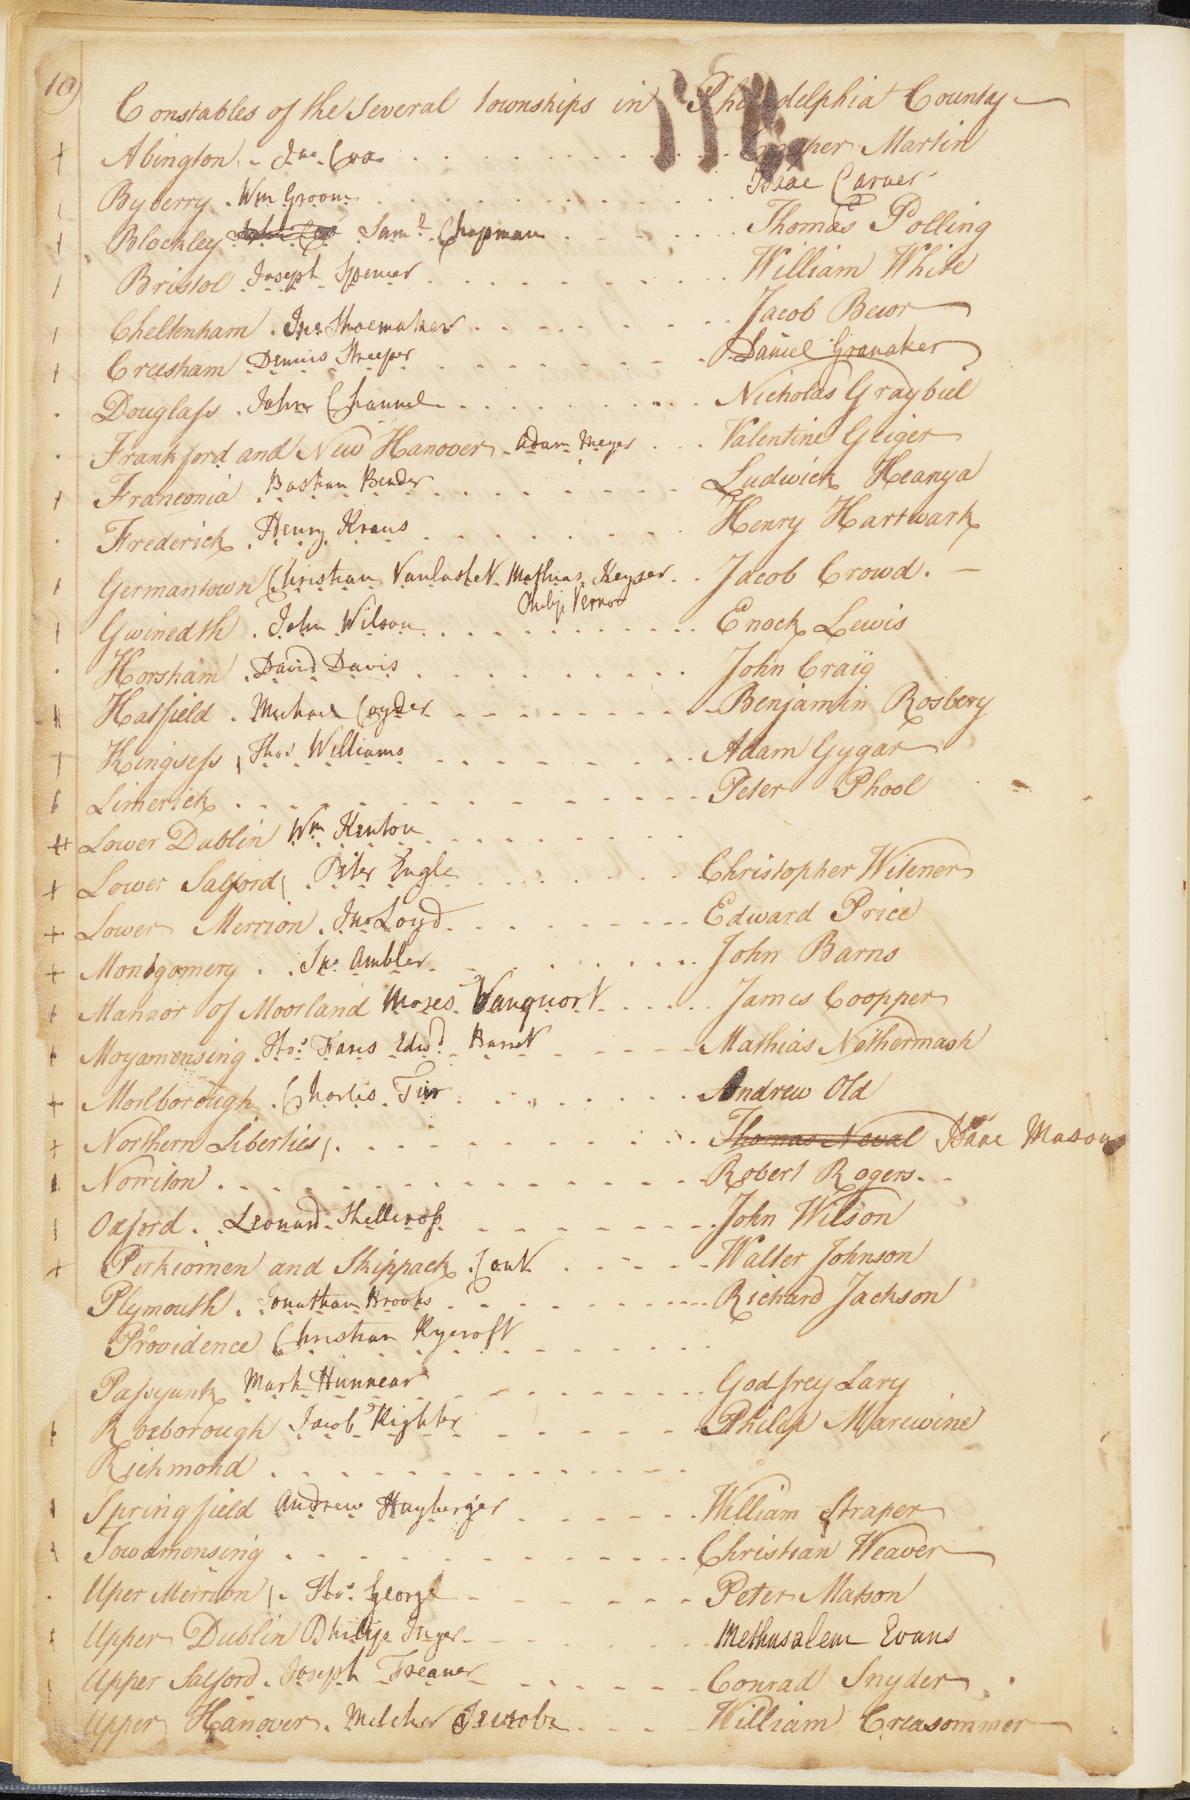 10
Constables of the Several Townships in Philadelphia County
Abington. Jno. Cox Martin
Byberry. Wm Groom Isaac Carver
Blockley Saml. Chapman Thomas Polling
Bristol Joseph Spencer William White
Cheltenham. Jno. Shoemaker Jacob Bewor
Creesham Dennis Streeper Daniel Granaker
Douglass. John Channel Nicholas Graybiel
Frankford and New Hanover. Adam Meyer Valentine Geiger
Franconia Bastian Bender Ludwick Heanya
Frederick. Henry Kraus Henry Hartwark
Germantown Christian Mathias Keyser Jacob Crowd.
Philip Vernor
Gwinedth. John Wilson Enock Lewis
Horsham. David Davis John Craig
Hatfield. Michael Benjamin Rosbery
Kingsess Thos Williams Adam Gygar
Limerick Peter Phool
Lower Dublin Wm Kenton
Lower Salford Peter Engle Christopher Witener
Lower Merrion. Jno Loyd Edward Price
Montgomery. Jno. Ambler John Barns
Mannor of Moorland Moses Vanquort James Coopper
Moyamensing Thos. Edwd. Barret Mathias Nethermask
Morlborough. Charles Andrew Old
Northern Liberties Thomas Noval Isaac Masons
Norriton Robert Rogers
Oxford. Leonard John Wilson
Perkiomen and Skippack. Cont Walter Johnson
Plymouth. Jonathan Brooks Richard Jackson
Providence Christian Rycroft
Passyunk Mark Hunnear Godfrey Lary
Roxborough Jacob Righter Philip Marewine
Richmond
Springfield Andrew Hayberger William Straper
Towamensing Christian Weaver
Uper Merrion Thos. George Peter Matson
Upper Dublin Philip Methusalem Evans
Upper Salford. Joseph Conrad Snyder
Upper Hanover. Melcher William Creasommer